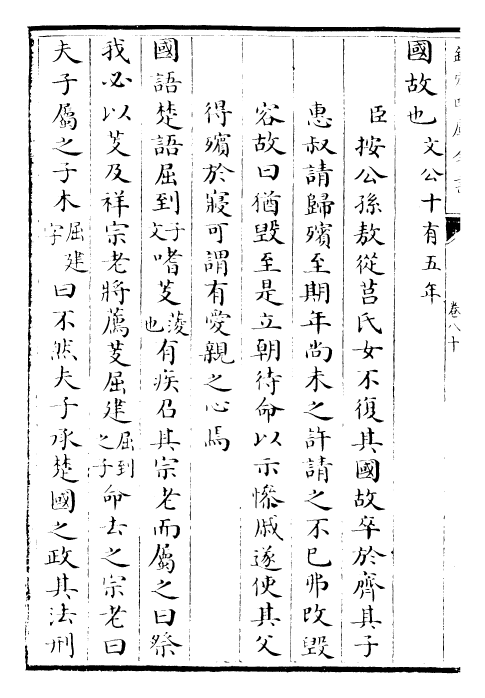 欽定四庫全書
卷八十
國故也文公十有五年
臣按公孫敖從莒氏女不復其國故卒於齊其子
惠叔請歸殯至期年尚未之許請之不已弗改毀
容故曰猶毀至是立朝待命以示慘戚遂使其父
得殯於寢可謂有愛親之心焉
國語楚語屈到子文嗜芰蔆也有疾召其宗老而屬之曰祭
我必以芰及祥宗老將薦芰屈建屈到之子命去之宗老曰
夫子屬之子木屈建字曰不然夫子承楚國之政其法刑